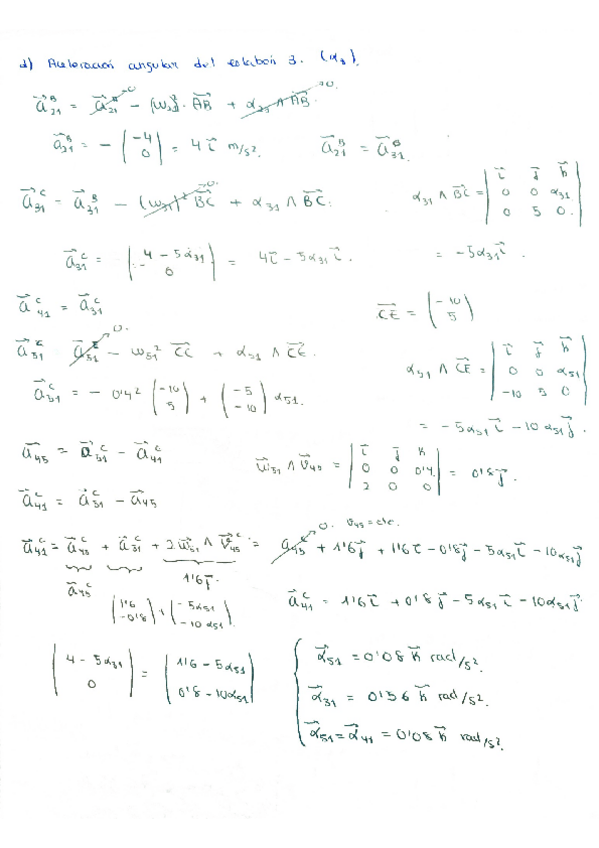 d) Aceleración angular del eslabón 3. (α₃).
a⃗₂₁ᴮ = a⃗₂₁ᴬ - (ω₂₁)²·AB⃗ + α₂₁ ∧ AB⃗. 0. 0.
a⃗₂₁ᴮ = - (-4 0) = 4 i⃗ m/s². a⃗₂₁ᴮ = a⃗₃₁ᴮ
a⃗₃₁ᶜ = a⃗₃₁ᴮ - (ω₃₁)² BC⃗ + α₃₁ ∧ BC⃗. 0. α₃₁ ∧ BC⃗ = | i⃗ j⃗ k⃗ 0 0 α₃₁ 0 5 0 |
a⃗₃₁ᶜ = (4 - 5α₃₁ 0) = 4i⃗ - 5α₃₁ i⃗. = -5α₃₁ i⃗.
a⃗₄₁ᶜ = a⃗₃₁ᶜ CE⃗ = (-10 5)
a⃗₅₁ᶜ a⃗₅₁ᴱ - ω₅₁² CE⃗ + α₅₁ ∧ CE⃗. 0. α₅₁ ∧ CE⃗ = | i⃗ j⃗ k⃗ 0 0 α₅₁ -10 5 0 |
a⃗₅₁ᶜ = - 0'4² (-10 5) + (-5 -10) α₅₁.
= -5α₅₁ i⃗ - 10α₅₁ j⃗.
a⃗₄₅ = a⃗₅₁ᶜ - a⃗₄₁ᶜ ω⃗₅₁ ∧ v⃗₄₅ = | i⃗ j⃗ k 0 0 0'4 2 0 0 | = 0'8 j⃗.
a⃗₄₁ᶜ = a⃗₅₁ᶜ - a⃗₄₅
a⃗₄₁ᶜ = a⃗₄₅ᶜ + a⃗₅₁ᶜ + 2ω⃗₅₁ ∧ v⃗₄₅ᶜ = a₄₅ᶜ + 1'6j⃗ + 1'6i⃗ - 0'8j⃗ - 5α₅₁ i⃗ - 10α₅₁ j⃗ 0. v₄₅ = cte.
a⃗₄₅ᶜ 1'6j⃗.
(1'6 -0'8) + (-5α₅₁ -10α₅₁) a⃗₄₁ᶜ = 1'6i⃗ + 0'8j⃗ - 5α₅₁ i⃗ - 10α₅₁ j⃗.
| 4 - 5α₃₁ 0 | = | 1'6 - 5α₅₁ 0'8 - 10α₅₁ |
α⃗₅₁ = 0'08 k⃗ rad/s².
α⃗₃₁ = 0'56 k⃗ rad/s².
α⃗₅₁ = α⃗₄₁ = 0'08 k⃗ rad/s².